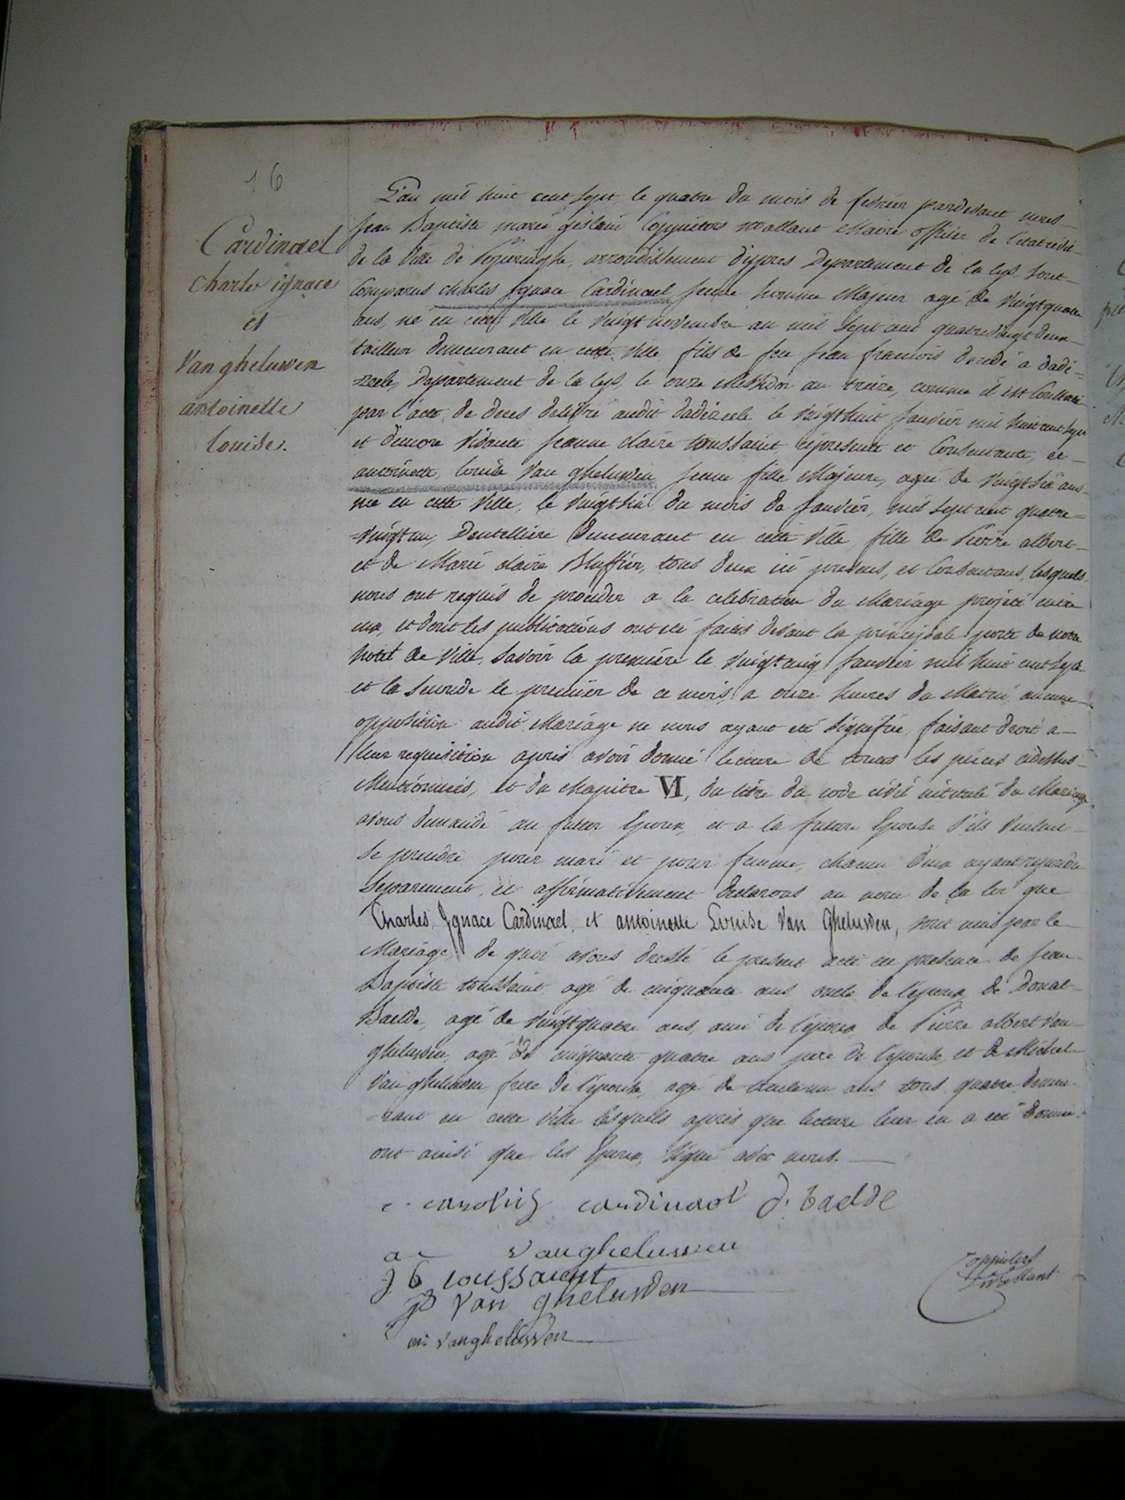 16
Cardinael
Charles ignace
et
Van gheluwen
antoinette
Louise.
L'an mil huit cent sept le quatre du mois de fevrier pardevant nous
Jean Baptiste marie gislain Coppieters Maire officier de l'etat
de la Ville de arrondissement d'ypres Departement de la Lys, sont
Comparus Charles Ignace Cardinael jeune homme Majeur agé de Vingtquatre
ans, né en cette Ville le Vingt novembre an mil sept cent quatrevingt deux
tailleur demeurant en cette Ville fils de feu Jean francois decedé a dadi-
zeele, Departement de la Lys, le onze Messidor an treize, comme il est Constaté
par l'acte de deces delivré audit dadizeele le Vingthuit Janvier mil huit cent sept
et d'encore Vivante Jeanne claire toussaint cy presente et Consentante, et
antoinette Louise Van gheluwen jeune fille Majeure, agée de Vingtsix ans
née en cette Ville, le Vingtsix du mois de Janvier, mil sept cent quatre-
vingtun, Dentelliere demeurant en cette Ville, fille de Pierre albert
et de Marie claire tous deux ici presens, et Consentans, lesquels
nous ont requis de proceder a la celebration du Mariage projeté entre
eux, et dont les publications ont été faites devant la principale porte de notre
hotel de Ville, Savoir la premiere le Vingtcinq Janvier mil huit cent sept
et la Seconde le premier de ce mois, a onze heures du Matin, aucune
opposition audit Mariage ne nous ayant été signifiée, faisant droit a
leur requisition apres avoir donné lecture de toutes les pieces cidessus
Mentionnées, et du chapitre VI, du titre du code civil intitulé du Mariage
avons demandé au futur Epoux, et a la future Epouse s'ils Veulent
se prendre pour mari et pour femme, chacun d'eux ayant repondu
Separement, et affirmativement Declarons au nom de la loi que
Charles, Ignace Cardinael, et antoinette Louise Van Gheluwen, sont unis par le
Mariage, de quoi avons dressé le present acte en presence de Jean
Baptiste toussaint agé de cinquante ans oncle de l'epoux de Donat
Baelde, agé de Vingtquatre ans, ami de l'epoux, de Pierre albert Van
gheluwen, agé de cinquante quatre ans pere de l'epouse, et de Michel
Van gheluwen frere de l'epouse, agé de ans, tous quatre demeu-
rant en cette Ville lesquels après que lecture leur en a été donnée
ont ainsi que les Epoux, signé avec nous.
cardinael d. baelde
vangheluwen
j b toussaent
Van gheluwen
vangheluwen
Coppieters